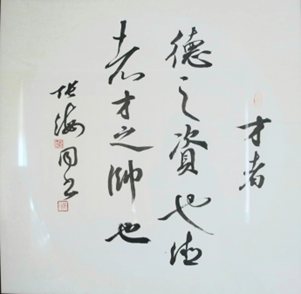 才者
德之資也德
者才之帥也
张海同书